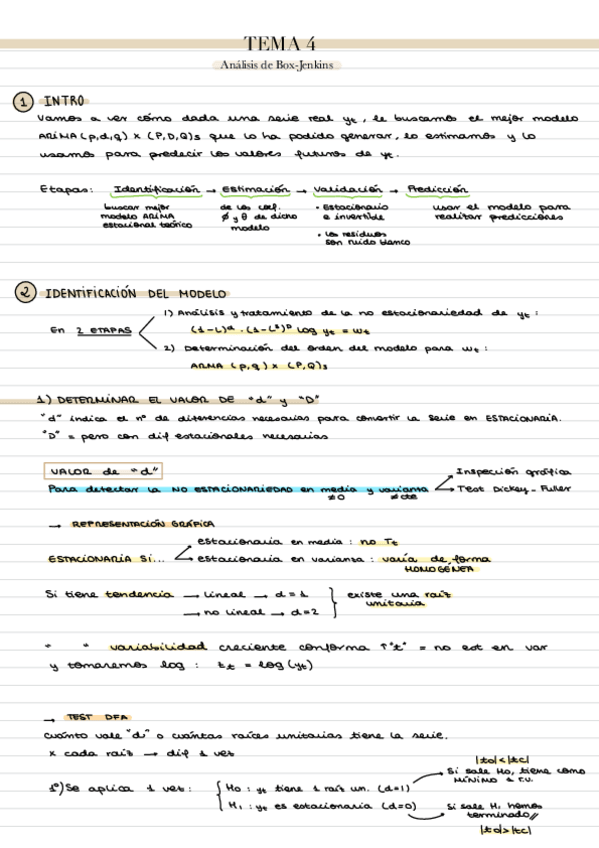 TEMA 4
Análisis de Box-Jenkins
1 INTRO
Vamos a ver cómo dada una serie real yt, le buscamos el mejor modelo
ARIMA (p,d,q) x (P,D,Q)s que lo ha podido generar, lo estimamos y lo
usamos para predecir los valores futuros de yt.
Etapas: Identificación → Estimación → Validación → Predicción
buscar mejor modelo ARIMA estacional teórico
de los coef. ϕ y θ de dicho modelo
· Estacionario e invertible
· los residuos son ruido blanco
usar el modelo para realizar predicciones
2 IDENTIFICACIÓN DEL MODELO
En 2 ETAPAS
1) Análisis y tratamiento de la no estacionariedad de yt :
(1-L)^d · (1-L^s)^D log yt = wt
2) Determinación del orden del modelo para wt :
ARMA (p,q) x (P,Q)s
1) DETERMINAR EL VALOR DE "d" y "D"
"d" indica el nº de diferencias necesarias para convertir la serie en ESTACIONARIA.
"D" = pero con dif estacionales necesarias
VALOR de "d"
Para detectar la NO ESTACIONARIEDAD en media y varianza
≠0 ≠cte
Inspección gráfica
Test Dickey-Fuller
→ REPRESENTACIÓN GRÁFICA
ESTACIONARIA SI...
estacionaria en media : no Tt
estacionaria en varianza : varía de forma
HOMOGÉNEA
Si tiene tendencia → lineal → d=1
→ no lineal → d=2
existe una raíz
unitaria
" " variabilidad creciente conforme ↑"t" = no est en var
y tomaremos log : zt = log (yt)
→ TEST DFA
cuánto vale "d" o cuántas raíces unitarias tiene la serie.
x cada raíz → dif 1 vez
1º) Se aplica 1 vez :
H0 : yt tiene 1 raíz un. (d=1)
H1 : yt es estacionaria (d=0)
|t0|<|tc|
Si sale H0, tiene como
MÍNIMO 1 r.u.
Si sale H1 hemos
terminado//
|t0|>|tc|